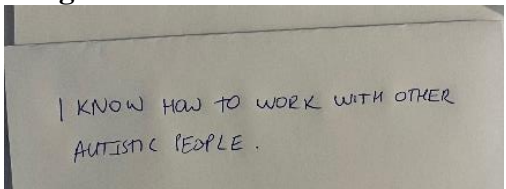 I KNOW HOW TO WORK WITH OTHER
AUTISTIC PEOPLE.